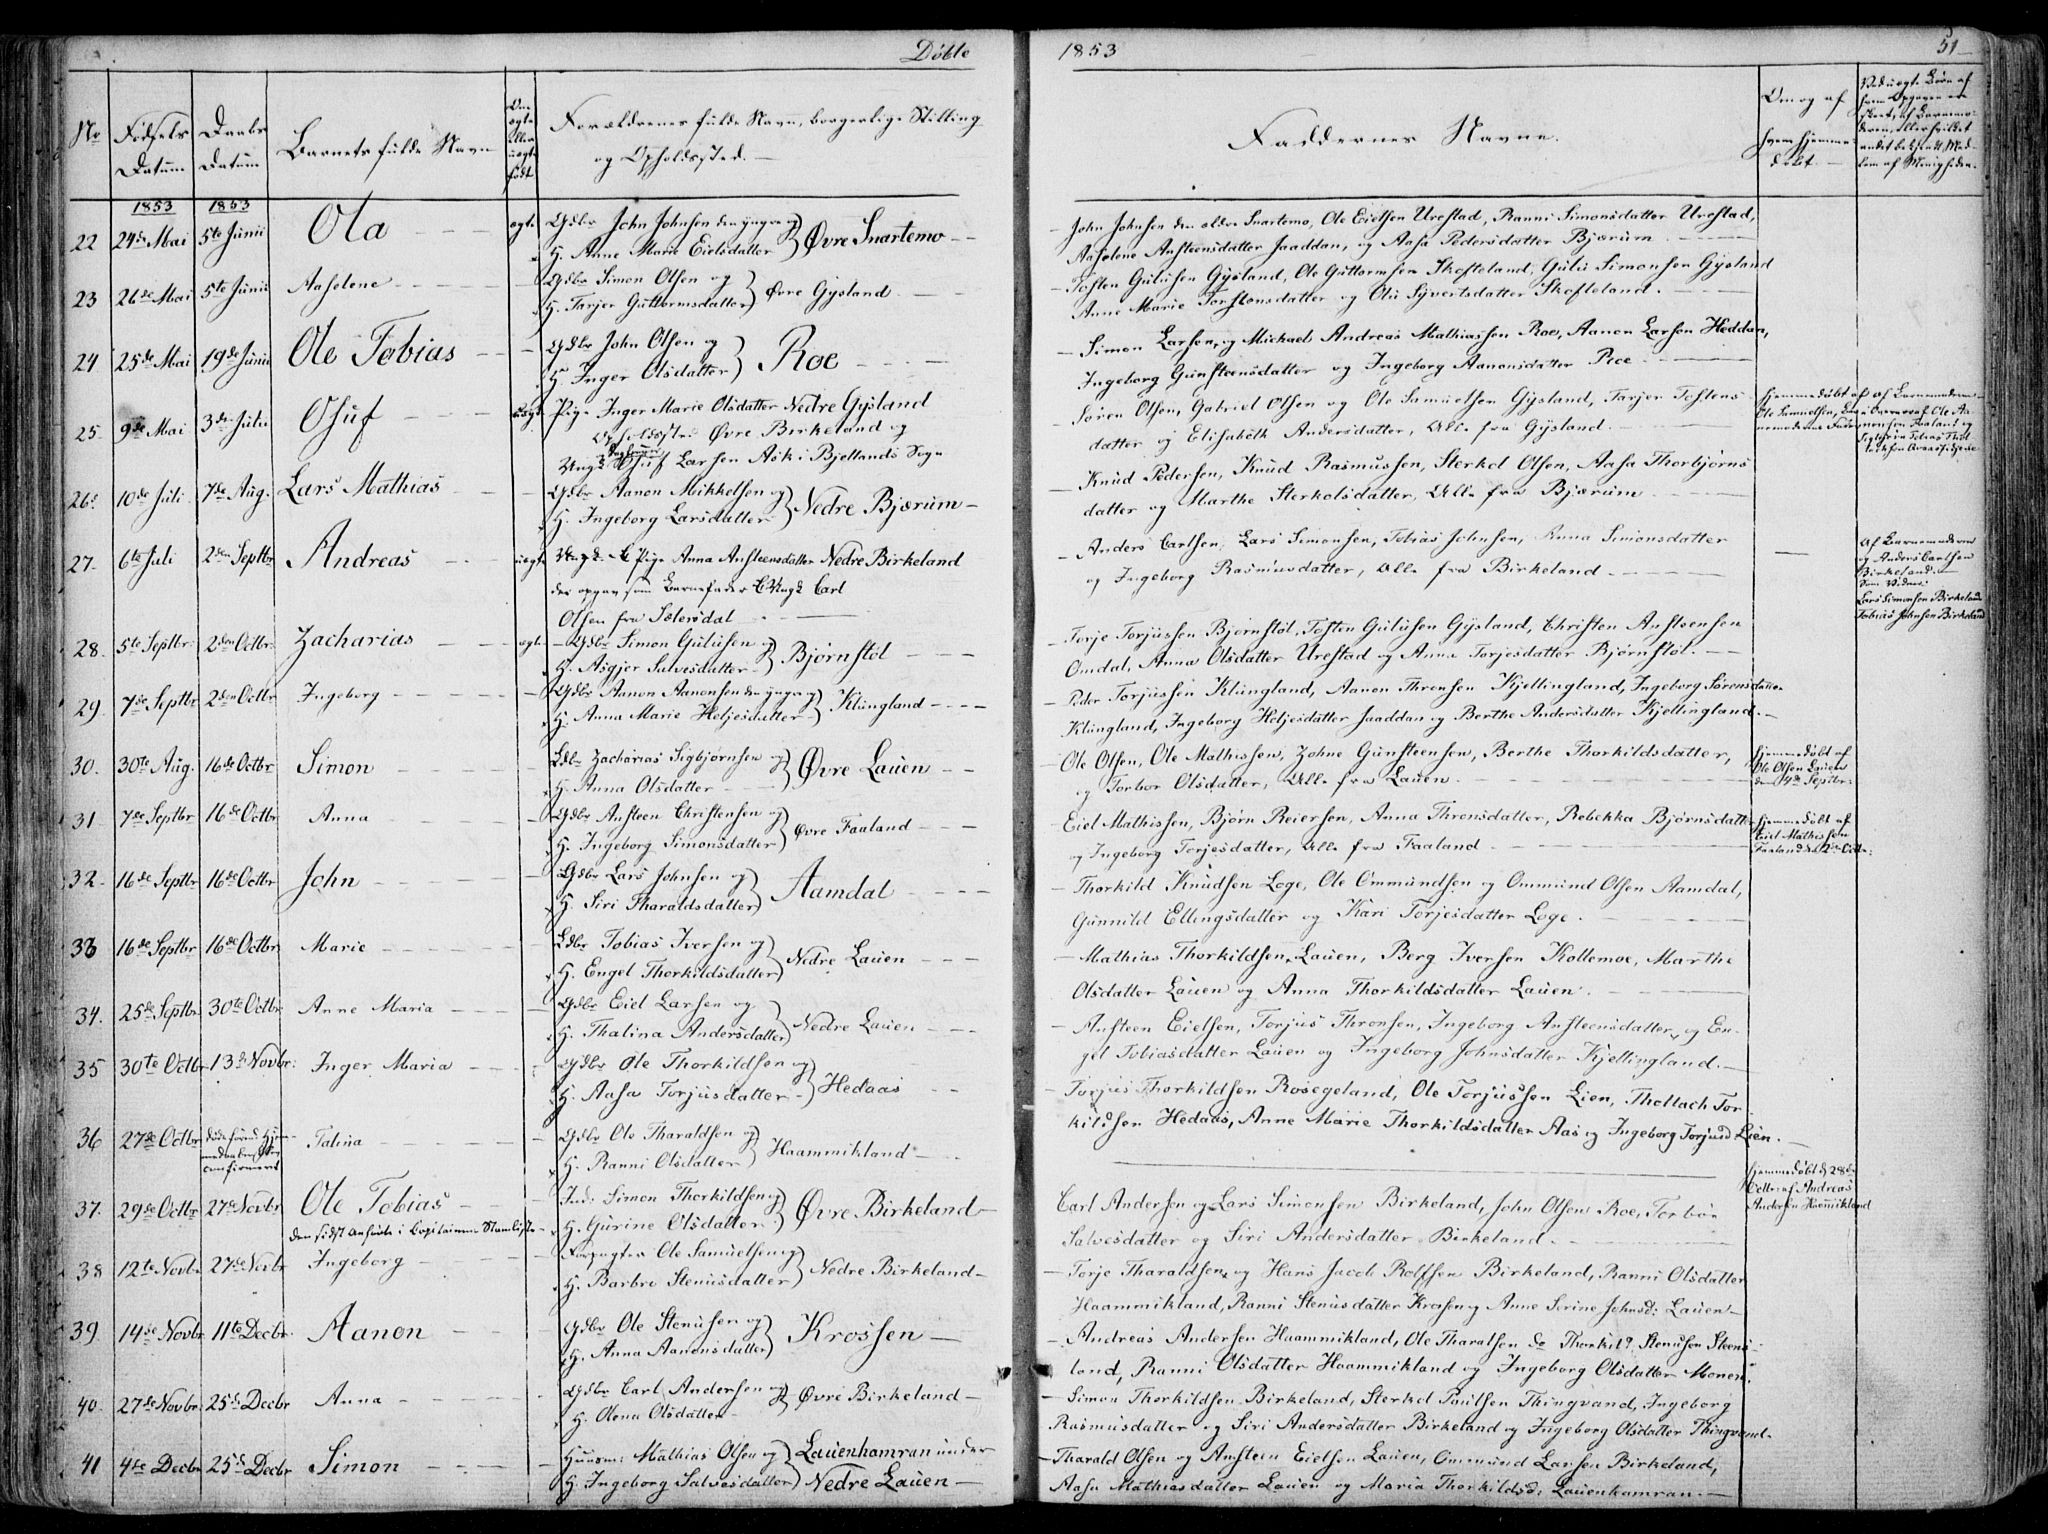 Døbte
1853
51
No
Fødsels Datum
Daabs Datum
Barnets fulde Navn
Om ægte eller uægte født
Forældrenes fulde Navn, borgerlige Stilling og Opholdssted.
Faddernes Navne.
Om og af hvem hjemmedøbt
1853 1853
22 24de Mai 5te Junii Ola ægte Gdbr John Johnsen den yngre og
H. Anne Marie Eielsdatter Øvre Snartemo
John Johnsen den ældre Snartemo, Ole Eielsen Urestad, Ranni Simonsdatter Urestad,
Aaselene Ansteensdatter Jaaddan, og Aasa Pedersdatter Bjærum.
23 26de Mai 5te Junii Aaselene Gdbr Simon Olsen og
H. Tarjer Guttormsdatter Øvre Gysland
Tosten Gulusen Gysland, Ole Guttormsen Skofteland, Gulu Simonsen Gysland
Anne Marie Torstensdatter og Olu Syvertsdatter Skofteland.
24 25de Mai 19de Junii Ole Tobias Gdbr John Olsen og
H. Inger Olsdatter Roe
Simon Larsen, og Michael Andreas Mathiassen Roe, Aanon Larsen Heddan,
Ingeborg Gunsteensdatter og Ingeborg Aanonsdatter Roe
25. 9de Mai 3de Julii Osuf uægte Pige Inger Marie Olsdatter Nedre Gysland
Opholdsste: Øvre Birkeland og
Ungk Osuf Larsen Ask i Bjellands Sogn
Søren Olsen, Gabriel Olsen og Ole Samuelsen Gysland, Tarjer Tostens
datter og Elisabeth Andersdatter, Alle fra Gysland.
hjemmedøbt af
Ole Samuelsen,
af Barnemoderen
26. 10de Juli 7de Aug. Lars Mathias Gdbr Aanon Mikkelsen og
H. Ingeborg Larsdatter Nedre Bjærum
Knud Pedersen, Knud Rasmussen, Sterkol Olsen, Aasa Thorbjørns
datter og Marthe Sterkolsdatter, Alle fra Bjærum
27. 6te Juli 2den Septbr Andreas uægte Pige Anna Ansteensdatter Nedre Birkeland
der opgav som Barnefader Ungk Carl
Olsen fra Sætersdal
Anders Carlsen, Lars Simonsen, Tobias Johnsen, Anna Simonsdatter
og Ingeborg Rasmusdatter, Alle fra Birkeland.
af Barnemoderen
og Anders Carlsen
Birkeland.
Som Vidner:
Lars Simonsen Birkeland
Tobias Johnsen Birkeland
28. 5te Septbr 2den Octbr Zacharias ægte Gdbr Simon Gulusen og
H. Asgjer Salvesdatter Bjørnstøl
Torje Torjussen Bjørnstøl, Tosten Gulusen Gysland, Christen Ansteensen
Omdal, Anna Olsdatter Urestad og Anne Torjesdatter Bjørnstøl.
29. 7de Septbr 2den Octbr Ingeborg Gdbr Aanon Aanonsen den yngre og
H. Anna Marie Heljesdatter Klungland
Peder Torjussen Klungland, Aanon Thronsen Kjellingland, Ingeborg Sørensdatter
Klungland, Ingeborg Heljesdatter Jaaddan og Berthe Andersdatter Kjellingland.
30. 30te Aug. 16de Octbr Simon Ldbr Zacharias Sigbjørnsen og
H. Anna Olsdatter Øvre Lauen
Ole Olsen, Ole Mathissen, Zohne Gunsteensen, Berthe Thorkildsdatter,
og Torbor Olsdatter, Alle fra Lauen.
Hjemmedøbt af
Ole Olsen Lauen
den 4de Septbr:
31 7de Septbr 16de Octbr Anna Gdbr Ansteen Christensen og
H. Ingeborg Simonsdatter Øvre Faaland
Eiel Mathissen, Bjørn Reiersen, Anna Thronsdatter, Rebekka Bjørnsdatter
og Ingeborg Torjesdatter, Alle fra Faaland
hjemmedøbt af
Eiel Mathissen
Faaland den 2den Octbr:
32. 16de Septbr 16de Octbr John Gdbr Lars Johnsen og
H. Siri Tharaldsdatter Aamdal
Thorkild Knudsen Loge, Ole Ommundsen og Ommund Olsen Aamdal,
Gunnild Ellingsdatter og Kari Torjesdatter Loge.
33 16de Septbr 16de Octbr Marie Ldbr Tobias Iversen og
H. Engel Thorkildsdatter Nedre Lauen
Mathias Thorkildsen Lauen, Berg Iversen Kollemoe, Marthe
Olsdatter Lauen og Anna Thorkildsdatter Lauen.
34. 25de Septbr 30te Octbr Anne Maria Gdbr Eiel Larsen og
H. Thalina Andersdatter Nedre Lauen
Ansteen Eielsen, Torjus Thronsen, Ingeborg Ansteensdatter, og En-
gel Tobiasdatter Lauen og Ingeborg Johnsdatter Kjellingland.
35 30te Octbr 13de Novbr: Inger Maria Gdbr Ole Thorkildsen og
H. Aasa Torjusdatter Hedaas
Torjus Thorkildsen Rosegeland, Ole Torjussen Lien, Thollach Tor
kildsen Hedaas, Anne Marie Thorkildsdatter Aas og Ingeborg Torjusd Lien.
36 27de Octbr Talina Gdbr Ole Tharaldsen og
H. Ranni Olsdatter Haammikland
hjemmedøbt d 28de
Octbr: af Andreas
Andersen Haammikland
37. 29de Octbr 27de Novbr Ole Tobias Ind. Simon Thorkildsen og
H. Gurine Olsdatter Øvre Birkeland
den sidst anførte i Capitainens Stamliste
Carl Andersen og Lars Simonsen Birkeland, John Olsen Roe, Torbor
Salvesdatter og Siri Andersdatter Birkeland.
38 12te Novbr 27de Novbr Ingeborg Forpagter Ole Samuelsen og
H. Barbro Stenusdatter Nedre Birkeland
Torje Tharaldsen, og Hans Jacob Rolfsen Birkeland, Ranni Olsdatter
Haammikland, Ranni Stenusdatter Krossen og Anne Serine Johnsd: Lauen
39. 14de Novbr 11te Decbr. Aanon Gdbr Ole Stenusen og
H. Anna Aanonsdatter Krossen
Andreas Andersen Haammikland, Ole Tharalsen do Thorkild Stenusen Steens-
land, Ranni Olsdatter Haammikland og Ingeborg Olsdatter Monen.
40. 27de Novbr: 25de Decbr Anna Gdbr Carl Andersen og
H. Olena Olsdatter Øvre Birkeland
Simon Thorkildsen Birkeland, Sterkol Paulsen Thingvand, Ingeborg
Rasmusdatter og Siri Andersdatter Birkeland og Ingeborg Olsdatter Thingvand.
41 4de Decbr 25de Decbr Simon Huusm: Mathias Olsen og Lauenhamran under
H. Ingeborg Salvesdatter Nedre Lauen
Tharald Olsen og Ansteen Eielsen Lauen, Ommund Larsen Birkeland,
Aasa Mathiasdatter Lauen og Maria Thorkildsd: Lauenhamran.